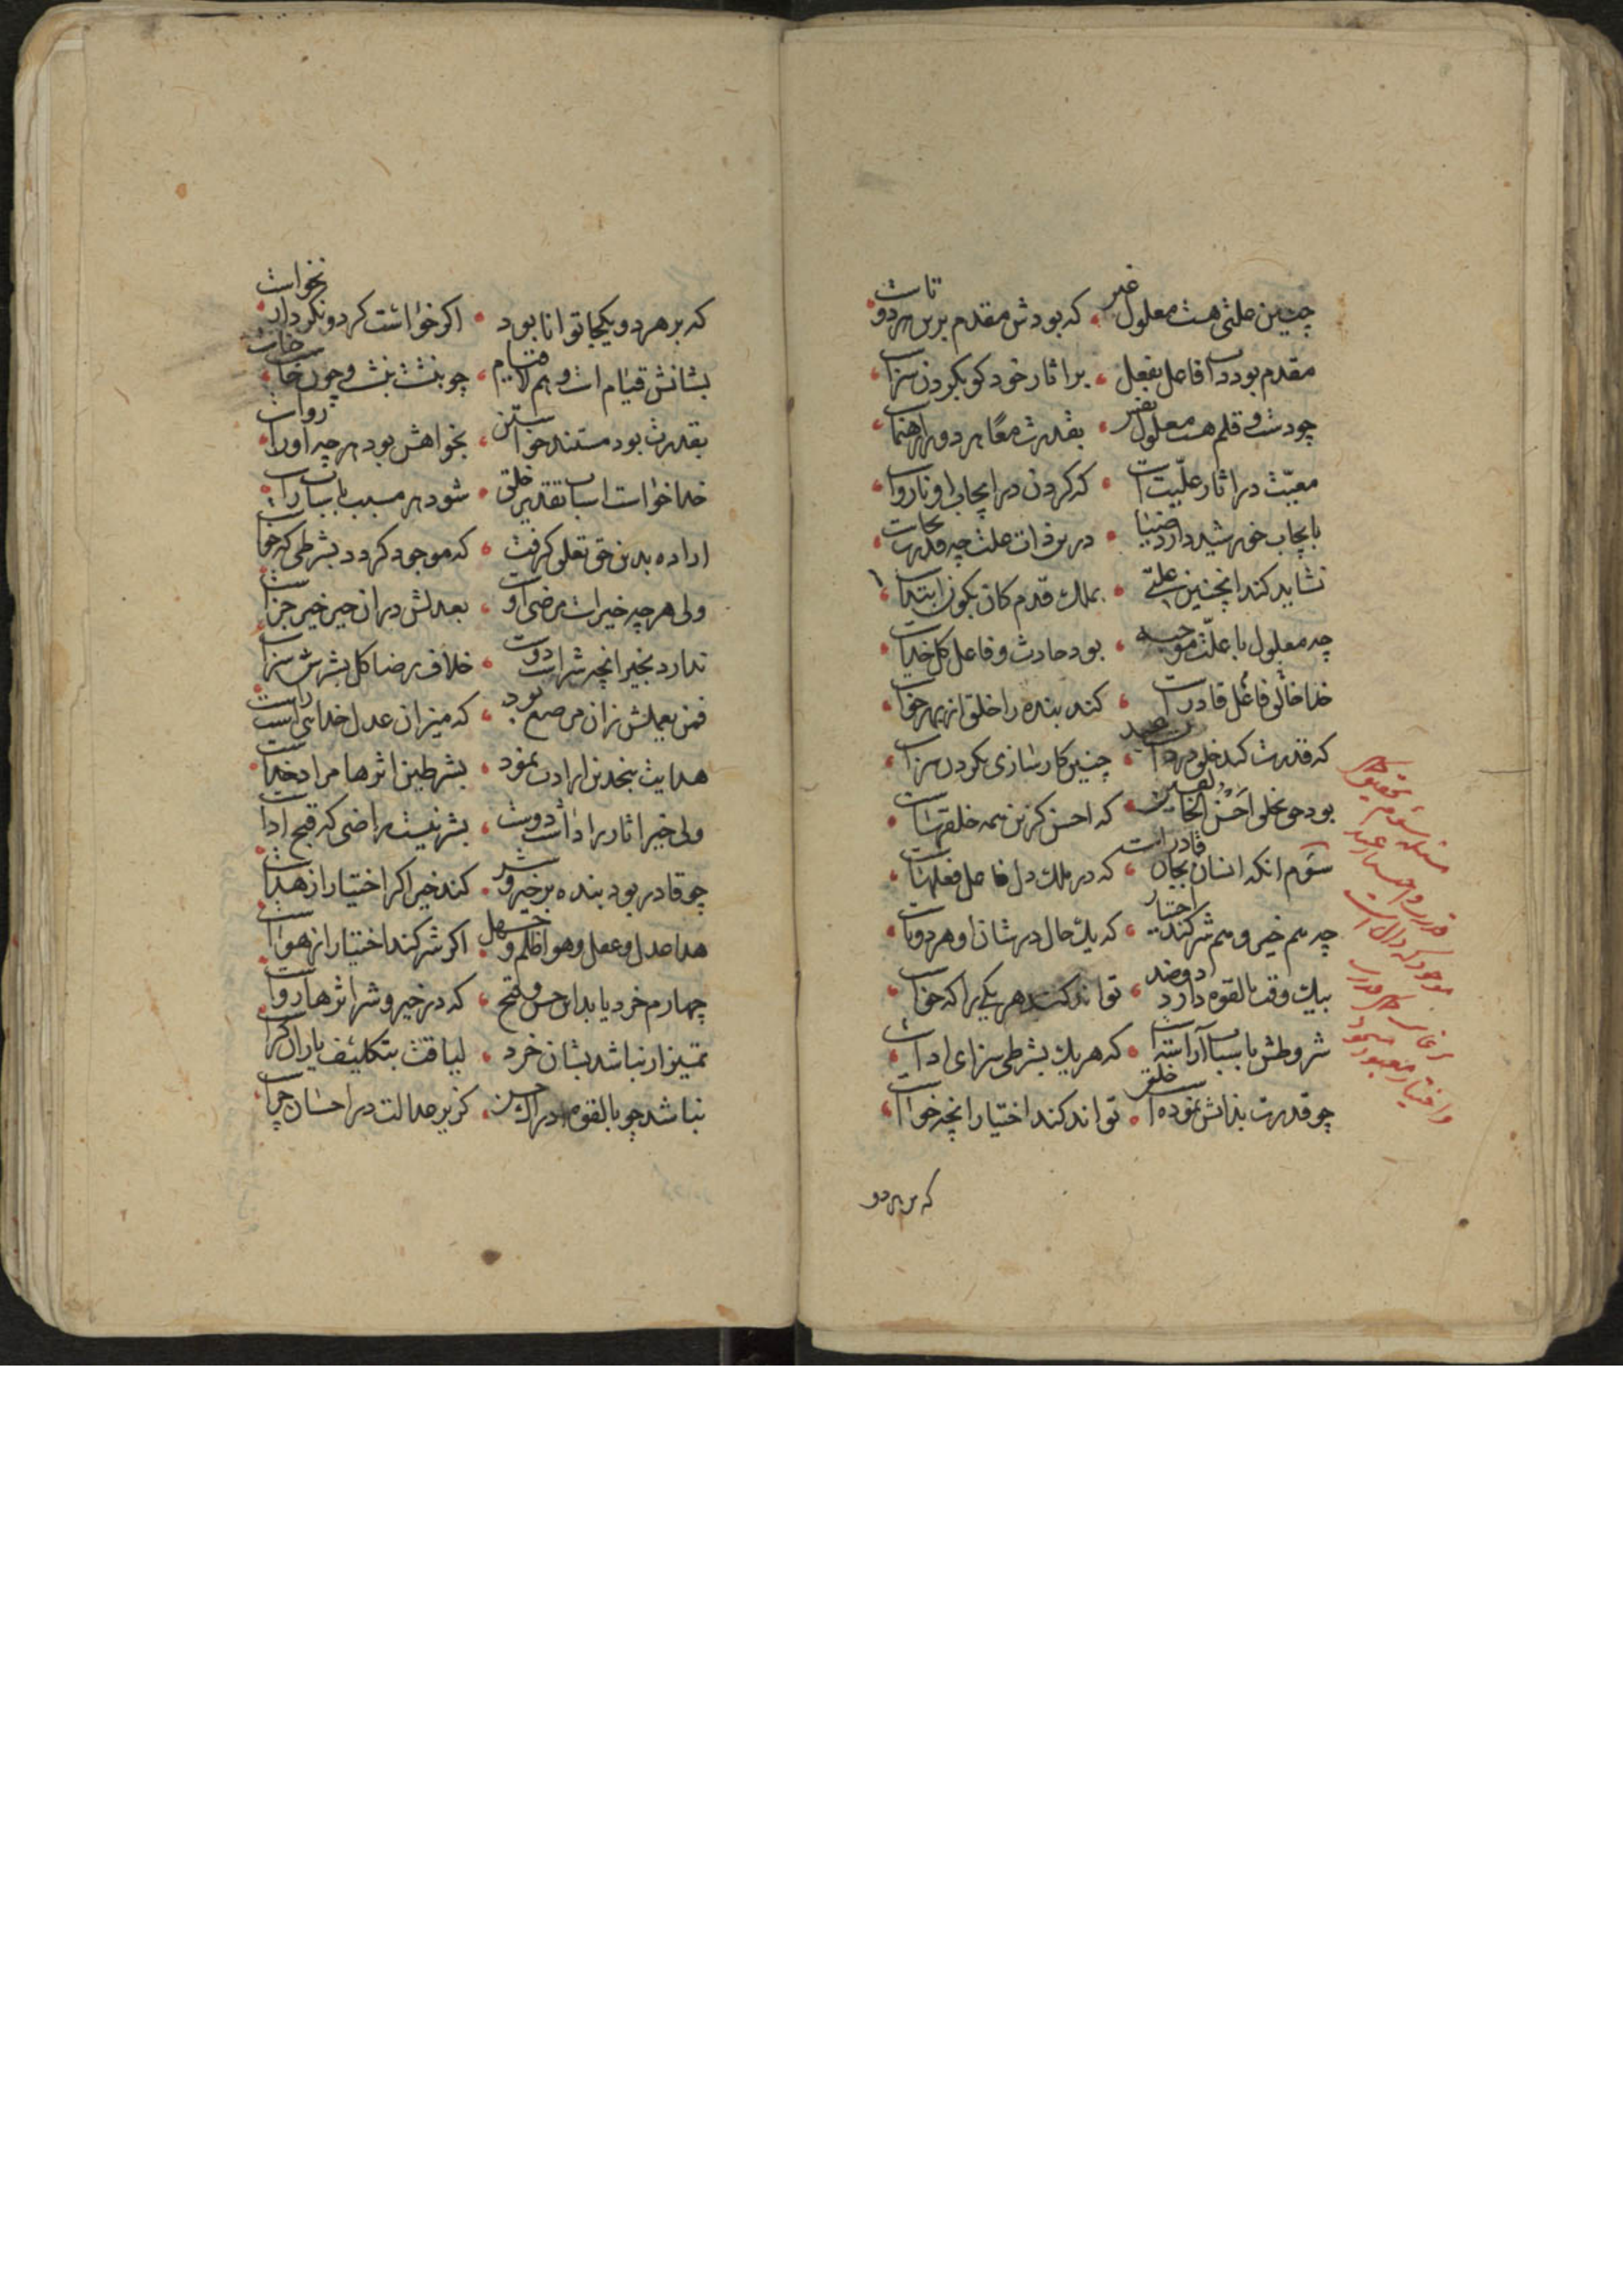 چنین علتی هست معلول غیر • که بودش مقدم برین هر دو تاست
مقدم بود فاعل بفعل • بر اثار خود کو بکردن سزاست
چو دست و قلم هست معلول نفس • بقدرت معًا هر دو را رهنماست
معیّت در اثار علّیّت است • که کردن در ایجاب او نارواست
بایجاب خورشید دارد ضیا • درین ذات علت چه قدرت بجاست
نشاید کند اینچنین علتی • بملک قدم کان بکون ابتداست
چه معلول با علّت موجبه • بود حادث و فاعل کل خداست
خدا خالق فاعل قادر است • کند بنده را خلق از بهر خواست
که قدرت کند خلق در ذات عبد • چنین کارسازی بکردن سزاست
بود حق تعلی احسن الخالقین • که احسن کزین همه خلقهاست
سوّم انکه انسان بجان قادر است • که در ملک دل فاعل فعلهاست
چه هم خیر و هم شر کند اختیار • که یک حال در شان او هر دو تاست
بیک وقت بالقوه دارد دو ضد • تواند کند هر یکی را که خواست
شروطش باسباب آراسته • که هر یک بشرطی سزای اداست
چو قدرت بذاتش نموده است خلق • تواند کند اختیار انچه خواست
که بر هر دو
مسئله سوم
که بر هر دو یکجا توانا بود • اکر خواست کرد و نکرد ار نخواست
بشانش قیام است و هم لا قیام • چو بنشست بنشست و چون خاست خاست
بقدرت بود مستند خواستن • بخواهش بود هر چه او را رواست
خدا خواست اسباب تقدیر خلق • شود هر مسبب باسباب راست
اراده بدین حق تعلق کرفت • که موجود کردد بشرطی که خواست
ولی هر چه خیر است مرضی اوست • بعدلش در ان خیر خیر جزاست
ندارد بخیر انچه شر است دوست • خلاف رضا کل بشرش سزاست
فمن یعمل زان مرصع بود • که میزان عدل خدائی راست
هدایت بنجدین ارادت نمود • بشرطین اثرها مراد خداست
ولی خیر اثار را داشت دوست • بشر نیست راضی که قبح اداست
چو قادر بود بنده بر خیر و شر • کند خیر اکر اختیار از هداست
هدا عدل و عقل و هوا ظلم و جهل • اکر شر کند اختیار از هواست
چهارم خرد یابد این حسن و قبح • که در خیر و شر اثرها رواست
تمیز ار نباشد بشان خرد • لیاقت بتکلیف یاران کراست
نباشد چو بالقوه ادراک حسن • کزیر عدالت در احسان چراست